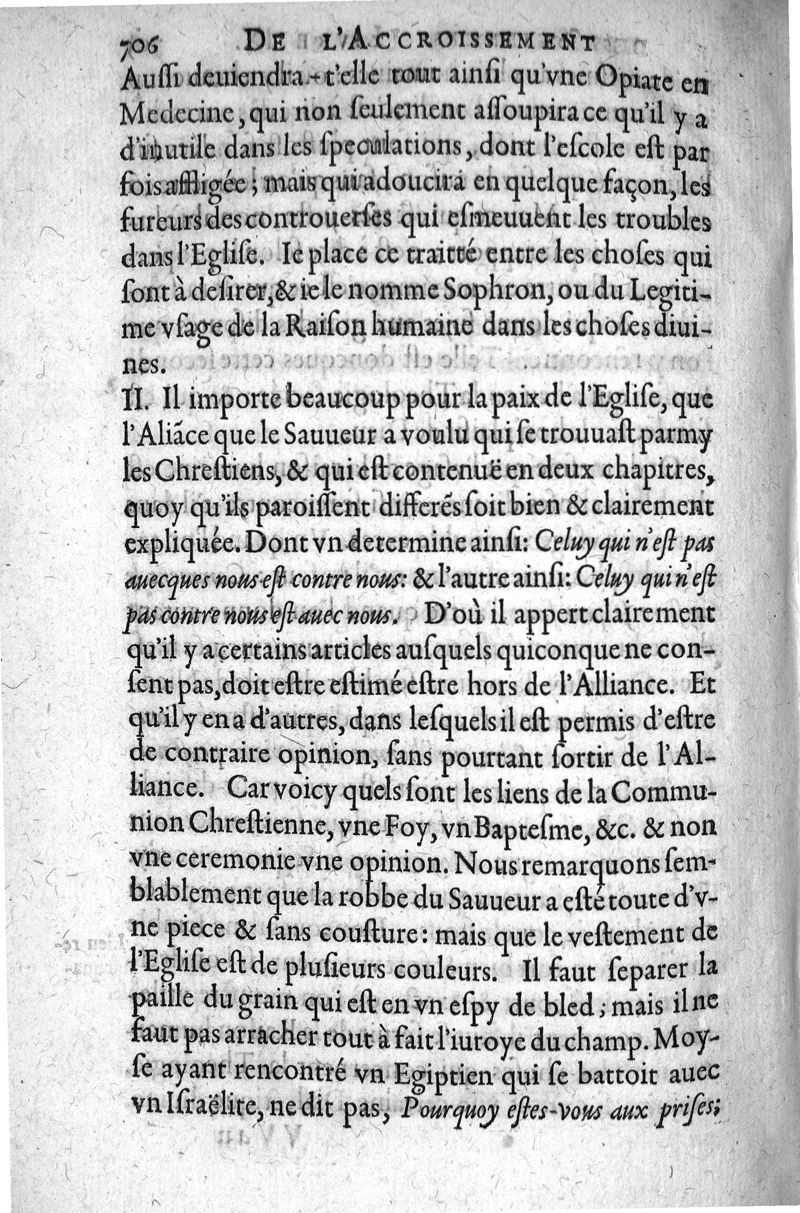 706 DE L'ACCROISSEMENT
Auſſi deuiendra-t'elle tout ainſi qu'vne Opiate en
Medecine, qui non ſeulement aſſoupira ce qu'il y a
d'inutile dans les ſpeculations, dont l'eſcole eſt par
fois affligée; mais qui adoucira en quelque façon, les
fureurs des controuerſes qui eſmeuuent les troubles
dans l'Egliſe. Ie place ce traitté entre les choſes qui
ſont à deſirer, & ie le nomme Sophron, ou du Legiti-
me vſage de la Raiſon humaine dans les choſes diui-
nes.
II. Il importe beaucoup pour la paix de l'Egliſe, que
l'Aliãce que le Sauueur a voulu qui ſe trouuaſt parmy
les Chreſtiens, & qui eſt contenuë en deux chapitres,
quoy qu'ils paroiſſent differẽs ſoit bien & clairement
expliquée. Dont vn determine ainſi: Celuy qui n'eſt pas
auecques nous eſt contre nous: & l'autre ainſi: Celuy qui n'eſt
pas contre nous eſt auec nous. D'où il appert clairement
qu'il y a certains articles auſquels quiconque ne con-
ſent pas, doit eſtre eſtimé eſtre hors de l'Alliance. Et
qu'il y en a d'autres, dans leſquels il eſt permis d'eſtre
de contraire opinion, ſans pourtant ſortir de l'Al-
liance. Car voicy quels ſont les liens de la Commu-
nion Chreſtienne, vne Foy, vn Bapteſme, &c. & non
vne ceremonie vne opinion. Nous remarquons ſem-
blablement que la robbe du Sauueur a eſté toute d'v-
ne piece & ſans couſture: mais que le veſtement de
l'Egliſe eſt de pluſieurs couleurs. Il faut ſeparer la
paille du grain qui eſt en vn eſpy de bled; mais il ne
faut pas arracher tout à fait l'iuroye du champ. Moy-
ſe ayant rencontré vn Egiptien qui ſe battoit auec
vn Iſraëlite, ne dit pas, Pourquoy eſtes-vous aux priſes;